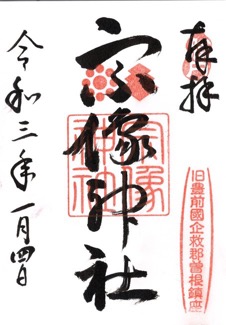 奉拝
旧豊前國企救郡曽根鎮座
宗像神社
宗像神社
令和三年一月四日